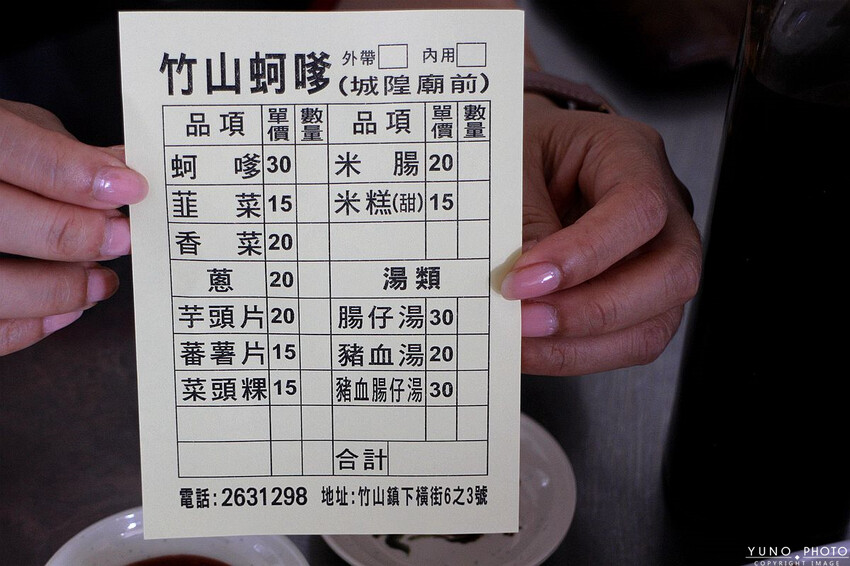 竹山蚵嗲 外帶 內用
(城隍廟前)
品項 單價 數量 品項 單價 數量
蚵嗲 30 米腸 20
韮菜 15 米糕(甜) 15
香菜 20
蔥 20 湯類
芋頭片 20 腸仔湯 30
蕃薯片 15 豬血湯 20
菜頭粿 15 豬血腸仔湯 30
合計
電話:2631298 地址:竹山鎮下橫街6之3號
YUNO PHOTO
COPYRIGHT IMAGE